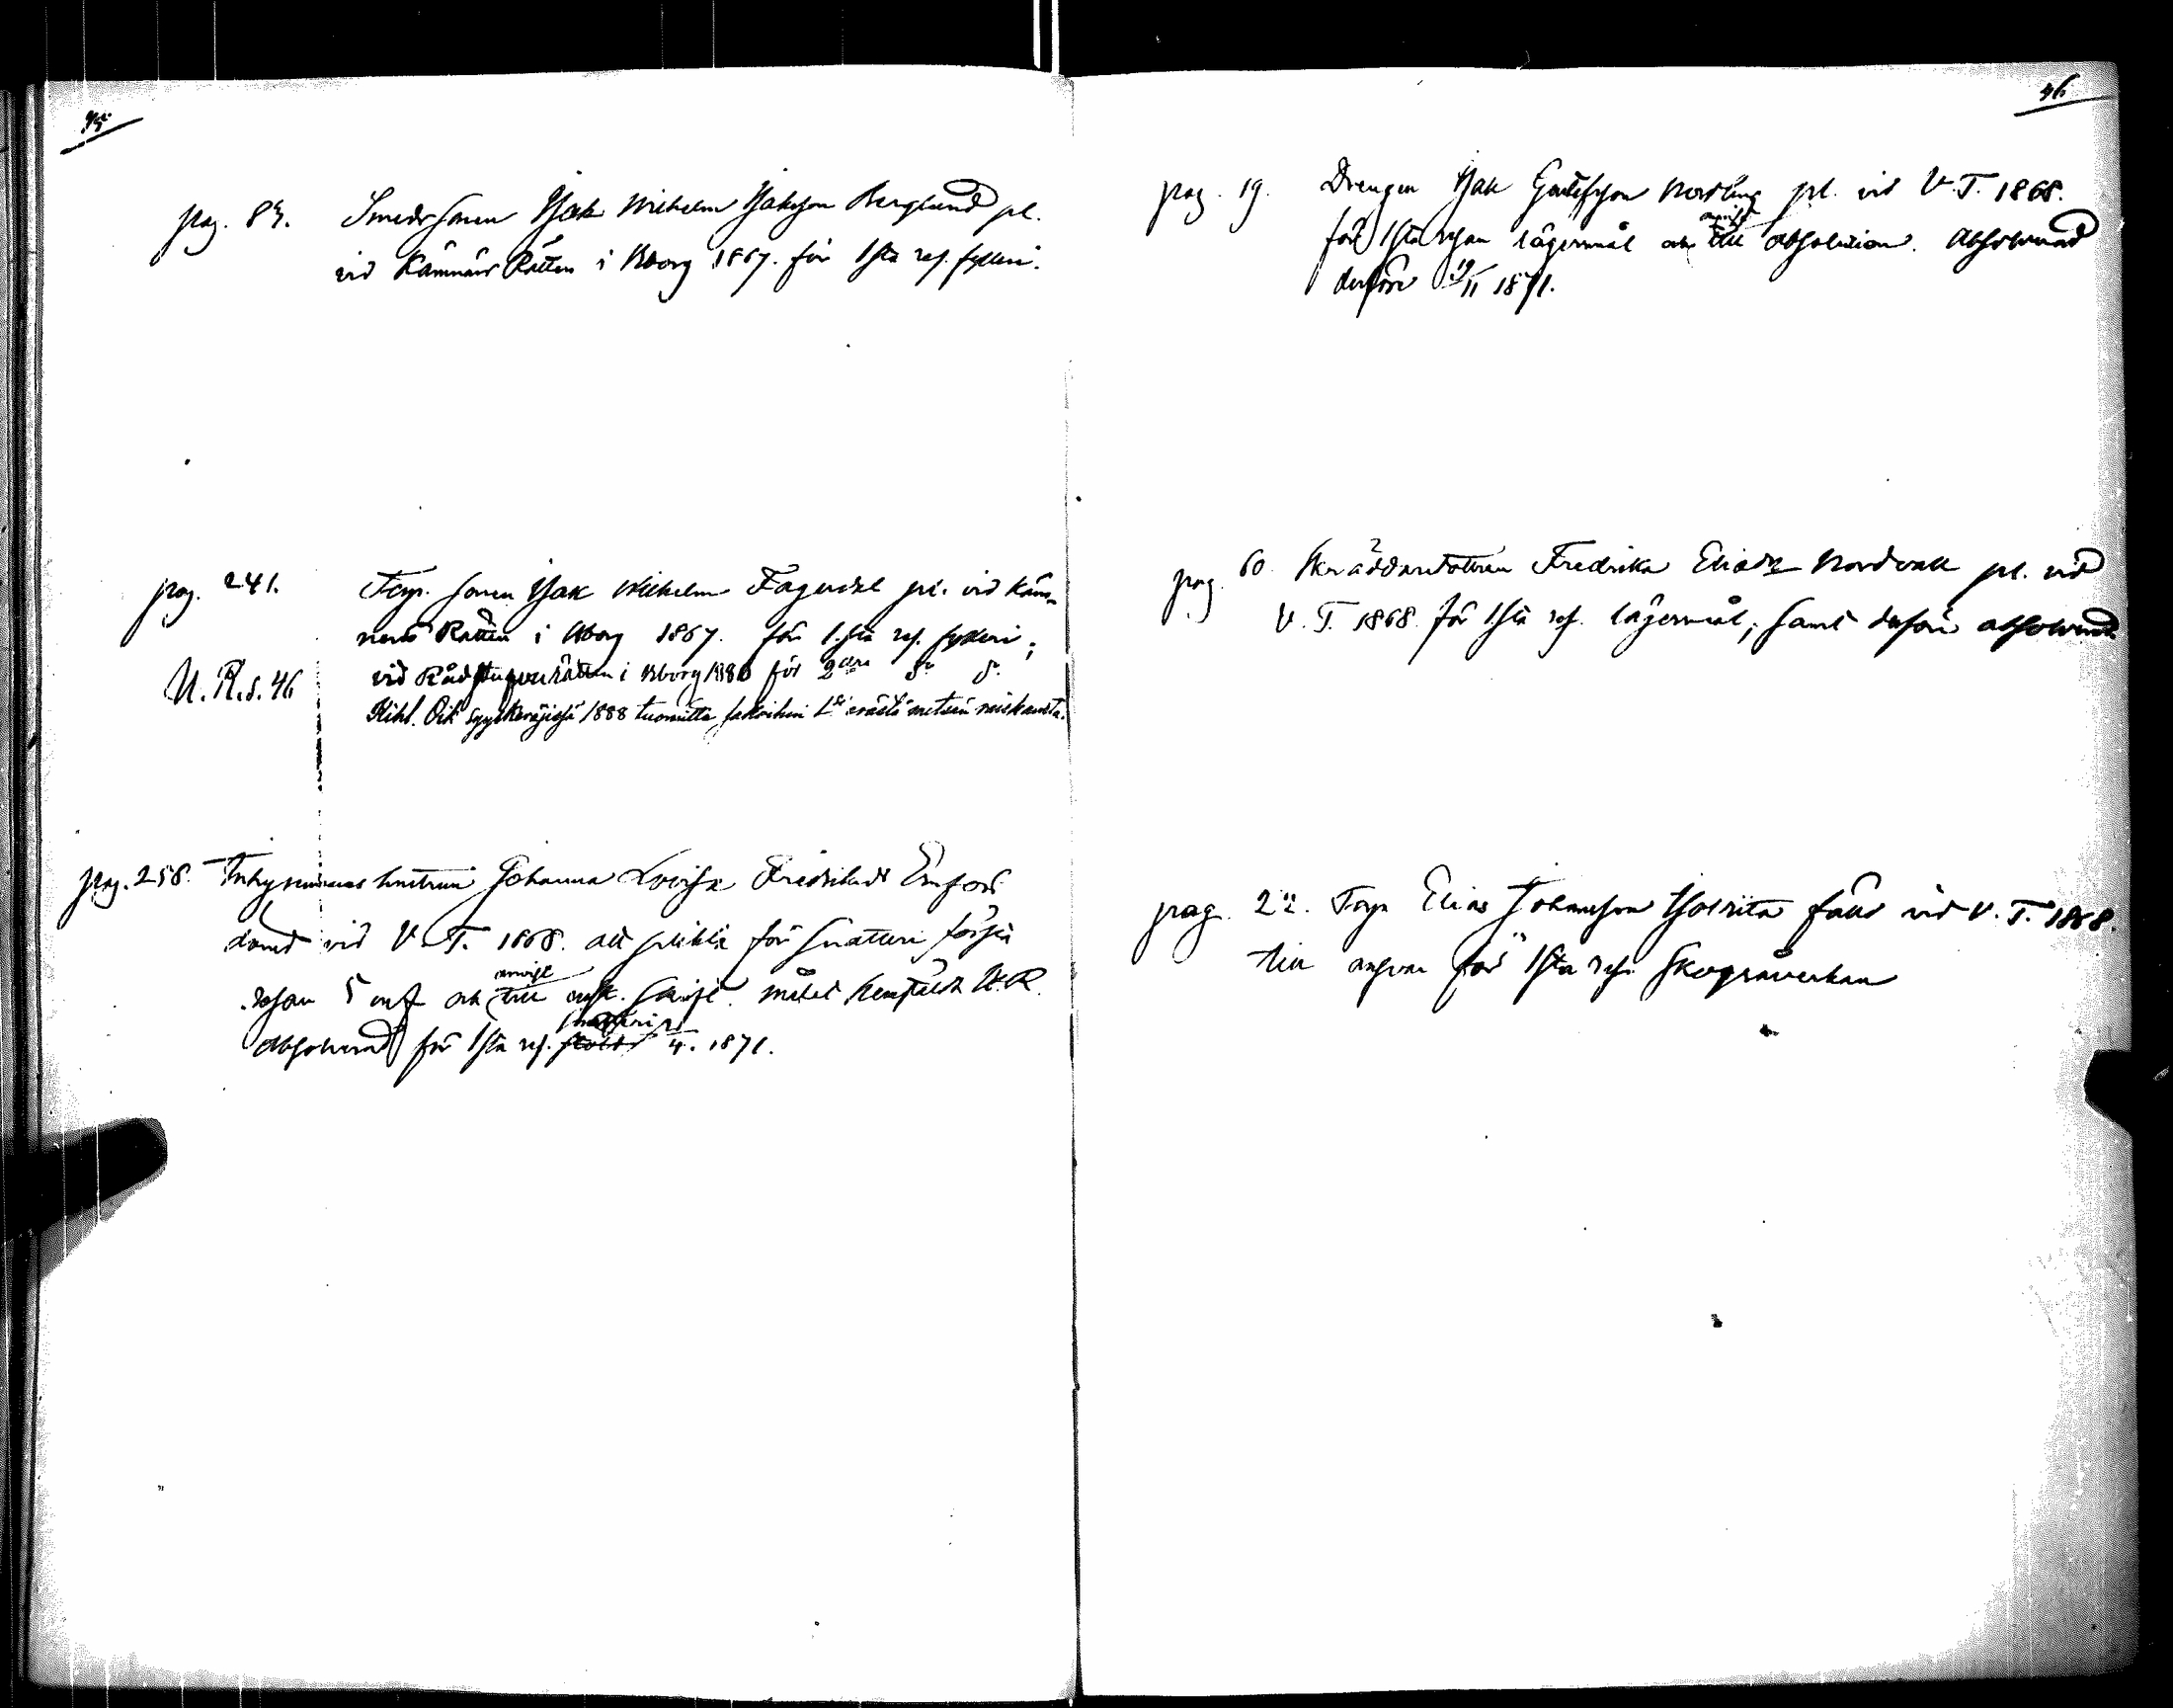 45
pag. 85. Smedssonen Isak Wilhelm Isaksson Berglund pl.
vid Kämnärs Rätten i Borg 1867. för 1sta res. fylleri.
pag. 241. Torp. sonen Isak Wilhelm Fagerdal pl. vid Käm-
ners Rätten i Borg 1867. för 1sta res. fylleri;
vid Rådstugurätten i Borg 1880 för 2dra do do
U. R. s. 46
Kihl. Oik syyskäräjissä 1888 tuomittu sakkoihin metsän raiskausta.
pag. 258. Inhysinges hustrun Johanna Lovisa Fredriksdr Enfors
dömd vid V. T. 1868. att plikta för snatteri första
resan 5 och till ensk. skrift. målet hemstäldt H. R.
enskilt
Absolverad för 1sta res. stöld 4. 1871.
snatteri
46
pag. 19. Drengen Isak Gustafsson Nordling pl. vid V. T. 1868.
för 1sta resan lägersmål och till absolution. Absolverad
enskilt
derföre 19/11 1871.
pag. 60. Skräddaredottren Fredrika Eliadr Nordvall pl. vid
V. T. 1868. för 1sta res. lägersmål; samt derföre absolverad.
pag. 22. Torp. Elias Johansson fälld vid V. T. 1868.
till ansvar för 1sta resn skogsåverkan